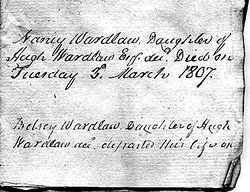 Nancy Wardlaw, Daughter of
Hugh Wardlaw Esqr. decd. Died on
Tuesday 3d. March 1807.
Betsey Wardlaw, Daughter of Hugh
Wardlaw decd. departed this life on